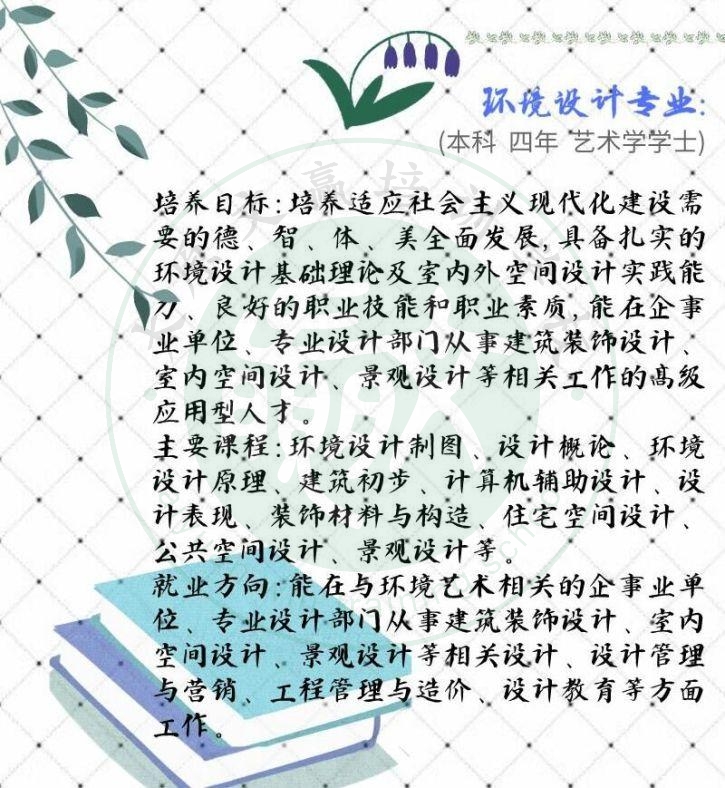 环境设计专业:
(本科 四年 艺术学学士)
培养目标:培养适应社会主义现代化建设需
要的德、智、体、美全面发展,具备扎实的
环境设计基础理论及室内外空间设计实践能
力、良好的职业技能和职业素质,能在企事
业单位、专业设计部门从事建筑装饰设计、
室内空间设计、景观设计等相关工作的高级
应用型人才。
主要课程:环境设计制图、设计概论、环境
设计原理、建筑初步、计算机辅助设计、设
计表现、装饰材料与构造、住宅空间设计、
公共空间设计、景观设计等。
就业方向:能在与环境艺术相关的企事业单
位、专业设计部门从事建筑装饰设计、室内
空间设计、景观设计等相关设计、设计管理
与营销、工程管理与造价、设计教育等方面
工作。